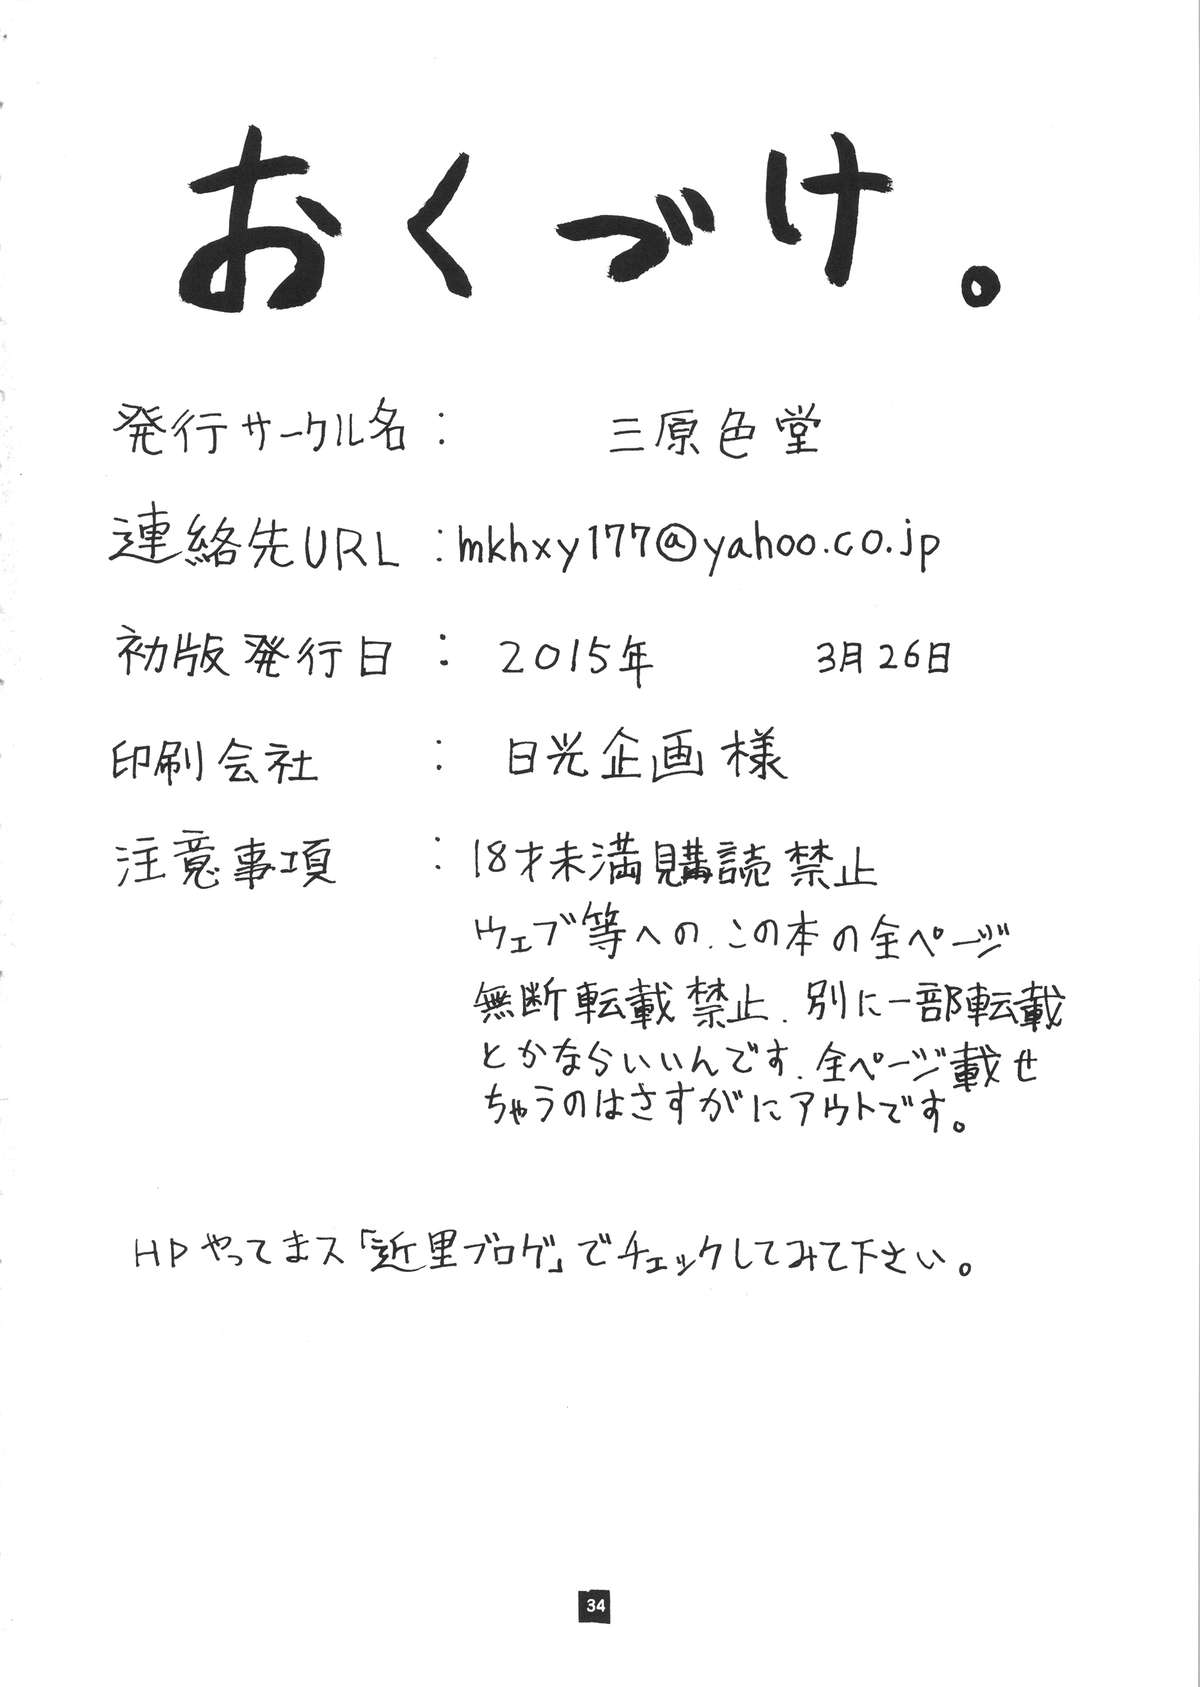 おくづけ。
発行サークル名: 三原色堂
連絡先URL:mkhxy177@yahoo.co.jp
初版発行日: 2015年 3月26日
印刷会社: 日光企画様
注意事項:18才未満購読禁止
ウェブ等への、この本の全ページ
無断転載禁止、別に一部転載
とかならいいんです、全ページ載せ
ちゃうのはさすがにアウトです。
HPやってまス「近里ブログ」でチェックしてみて下さい。
34